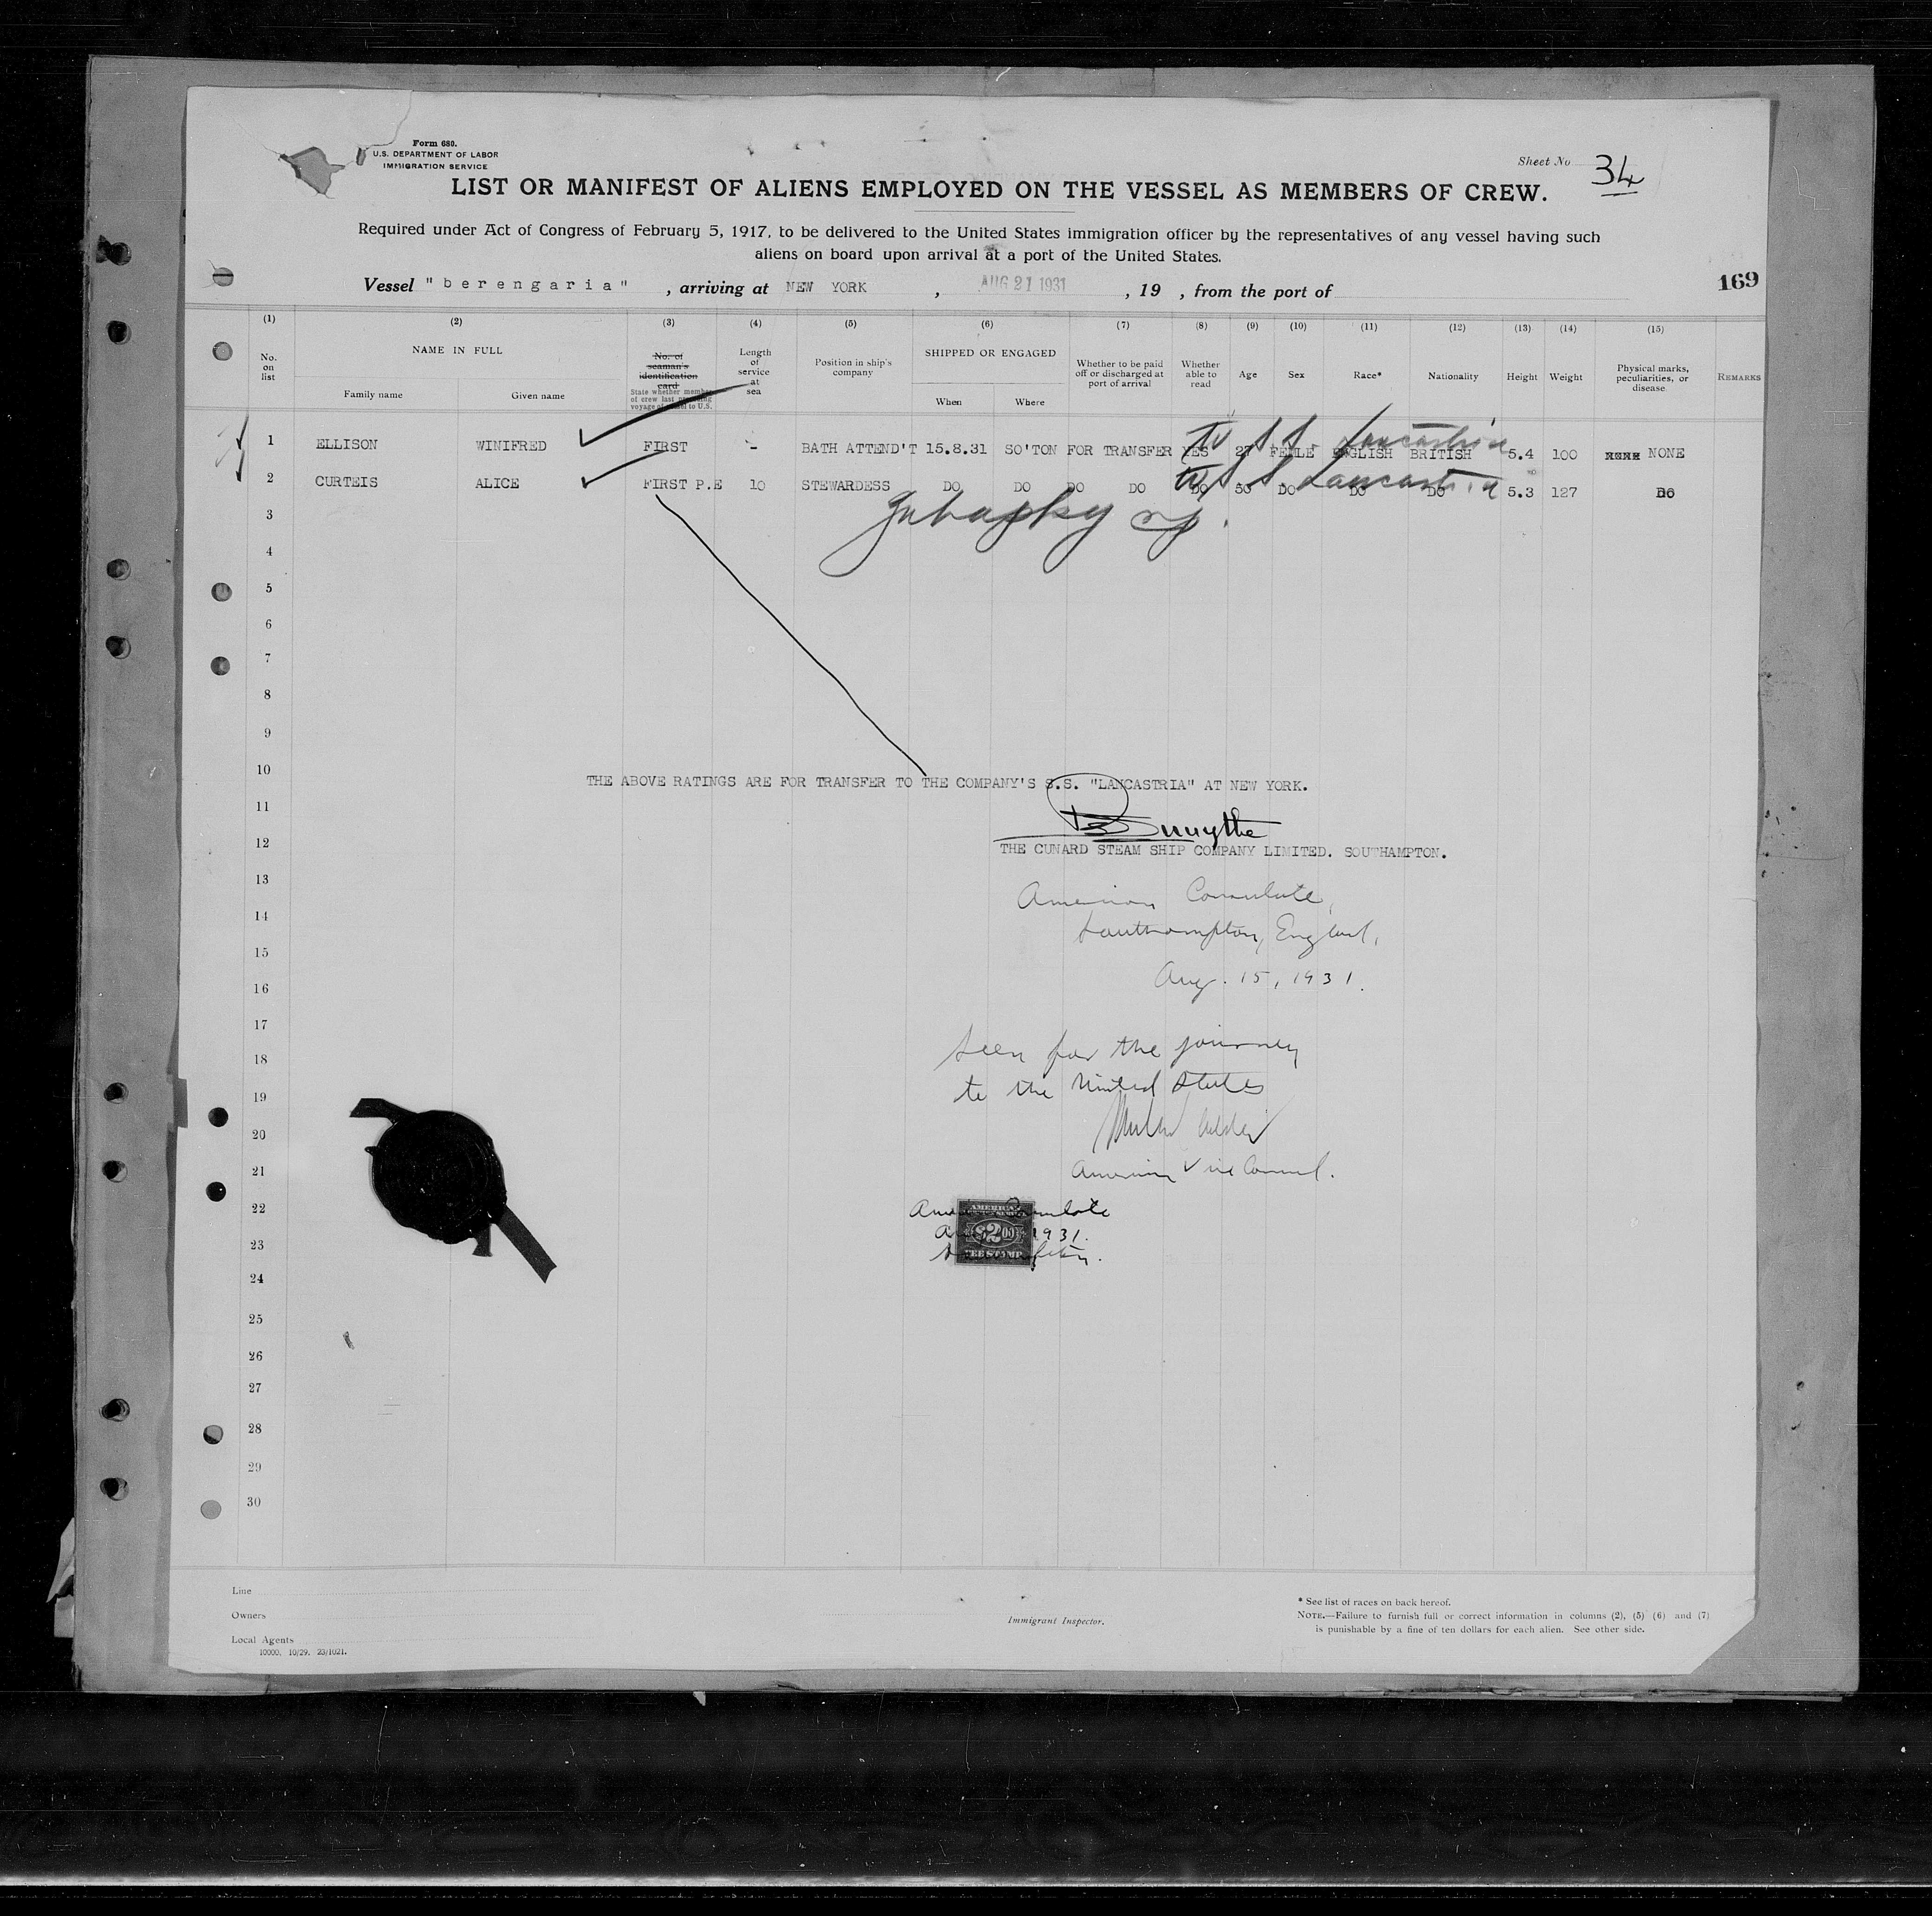 Form 680.
U.S. DEPARTMENT OF LABOR
IMMIGRATION SERVICE
Sheet No 34
LIST OR MANIFEST OF ALIENS EMPLOYED ON THE VESSEL AS MEMBERS OF CREW.
Required under Act of Congress of February 5, 1917, to be delivered to the United States immigration officer by the representatives of any vessel having such
aliens on board upon arrival at a port of the United States.
169
Vessel "berengaria" , arriving at NEW YORK , AUG 21 1931 , 19 , from the port of
(1) (2) (3) (4) (5) (6) (7) (8) (9) (10) (11) (12) (13) (14) (15)
No. on list
NAME IN FULL
Family name
Given name
No. of seaman's identification card
State whether member of crew last preceding voyage of vessel to U.S.
Length of service at sea
Position in ship's company
SHIPPED OR ENGAGED
When
Where
Whether to be paid off or discharged at port of arrival
Whether able to read
Age
Sex
Race*
Nationality
Height
Weight
Physical marks, peculiarities, or disease
REMARKS
to S S Lancastria
1 ELLISON WINIFRED FIRST - BATH ATTEND'T 15.8.31 SO'TON FOR TRANSFER YES 27 FEMLE ENGLISH BRITISH 5.4 100 NONE
to S S Lancastria
2 CURTEIS ALICE FIRST P.E 10 STEWARDESS DO DO DO DO DO 50 DO DO DO 5.3 127 DO
3
4
5
6
7
8
9
10
THE ABOVE RATINGS ARE FOR TRANSFER TO THE COMPANY'S S.S. "LANCASTRIA" AT NEW YORK.
11
Smythe
12
THE CUNARD STEAM SHIP COMPANY LIMITED. SOUTHAMPTON.
13
American Consulate,
14
Southampton, England,
15
Aug. 15, 1931.
16
17
Seen for the journey
18
to the United States
19
20
American Vice Consul.
21
22
American Consulate
AMERICAN
1931.
$2.00
23
FEE STAMP
Southampton.
24
25
26
27
28
29
30
Line
Owners
Local Agents
10000, 10/29. 23/1021.
Immigrant Inspector.
* See list of races on back hereof.
NOTE.—Failure to furnish full or correct information in columns (2), (5) (6) and (7)
is punishable by a fine of ten dollars for each alien. See other side.